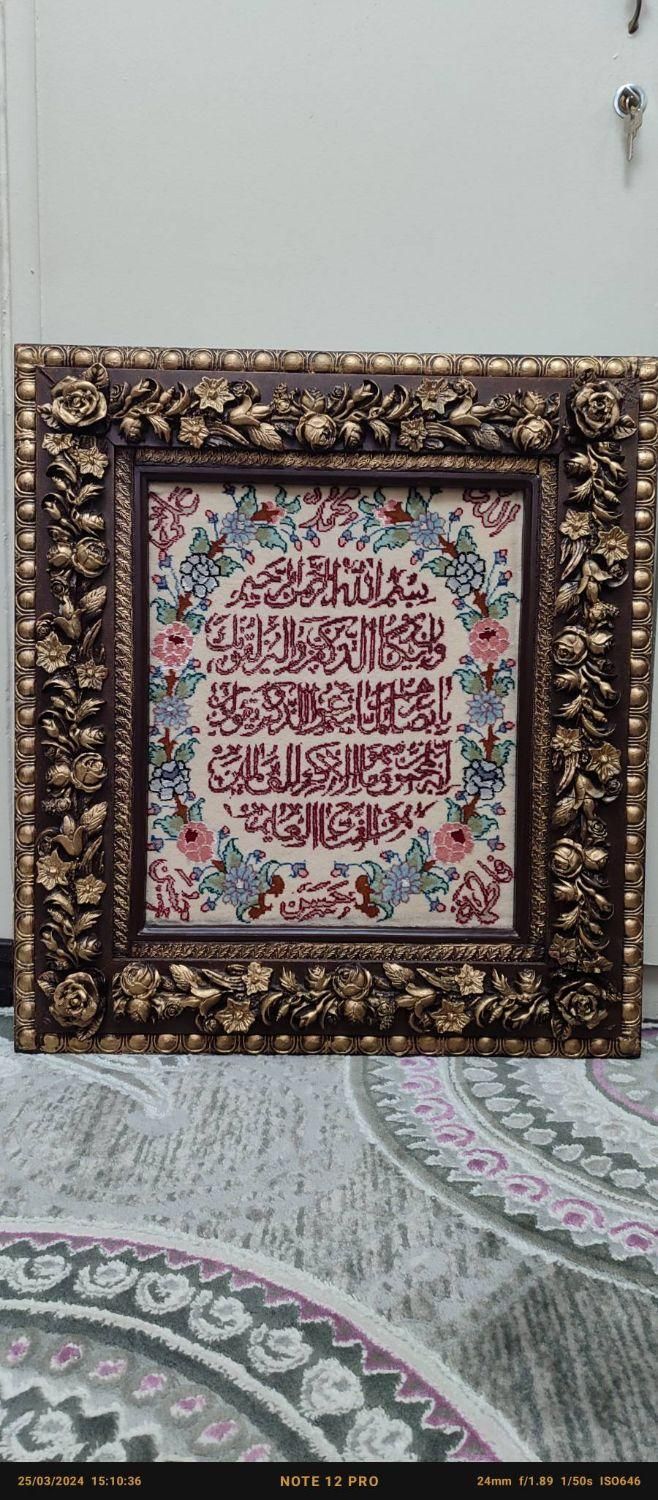 الله
محمد
علی
بسم الله الرحمن الرحیم
وإن یکاد الذین کفروا لیزلقونک
بأبصارهم لما سمعوا الذکر ویقولون
إنه لمجنون وما هو إلا ذکر للعالمین
فاطمة
حسین
حسن
25/03/2024 15:10:36
NOTE 12 PRO
24mm f/1.89 1/50s ISO646